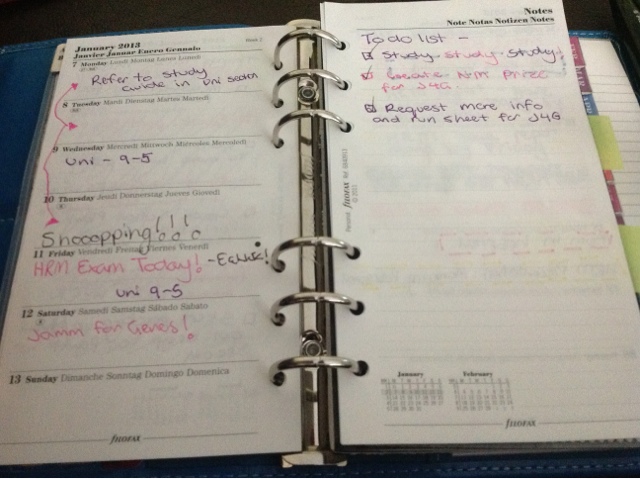 January 2013 Week 2
Janvier Januar Enero Gennaio
7 Monday Lundi Montag Lunes Lunedì
Refer to study
guide in uni section
8 Tuesday Mardi Dienstag Martes Martedì
9 Wednesday Mercredi Mittwoch Miércoles Mercoledì
uni - 9-5
10 Thursday Jeudi Donnerstag Jueves Giovedì
Shooopping!!!
11 Friday Vendredi Freitag Viernes Venerdì
HRM Exam Today!
uni 9-5
12 Saturday Samedi Samstag Sábado Sabato
Jamm for Genes!
13 Sunday Dimanche Sonntag Domingo Domenica
filofax
Notes
Note Notas Notizen Notes
To do list -
Study study study!
Prize
for J4G.
Request more info
and run sheet for J4G
Personal filofax
© 2011
January February
filofax